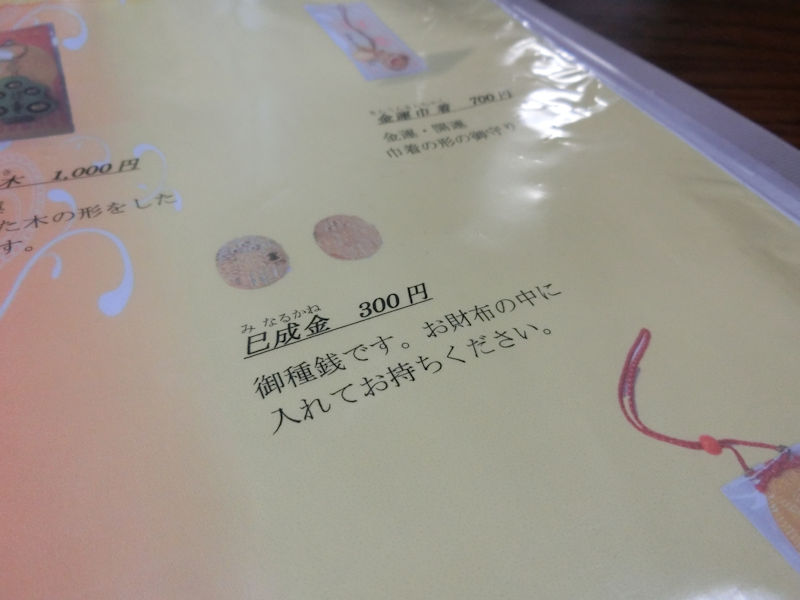 金運巾着 700円
金運・開運
巾着の形の御守り
木 1,000円
た木の形をした
す。
み なるかね
巳成金 300円
御種銭です。お財布の中に
入れてお持ちください。